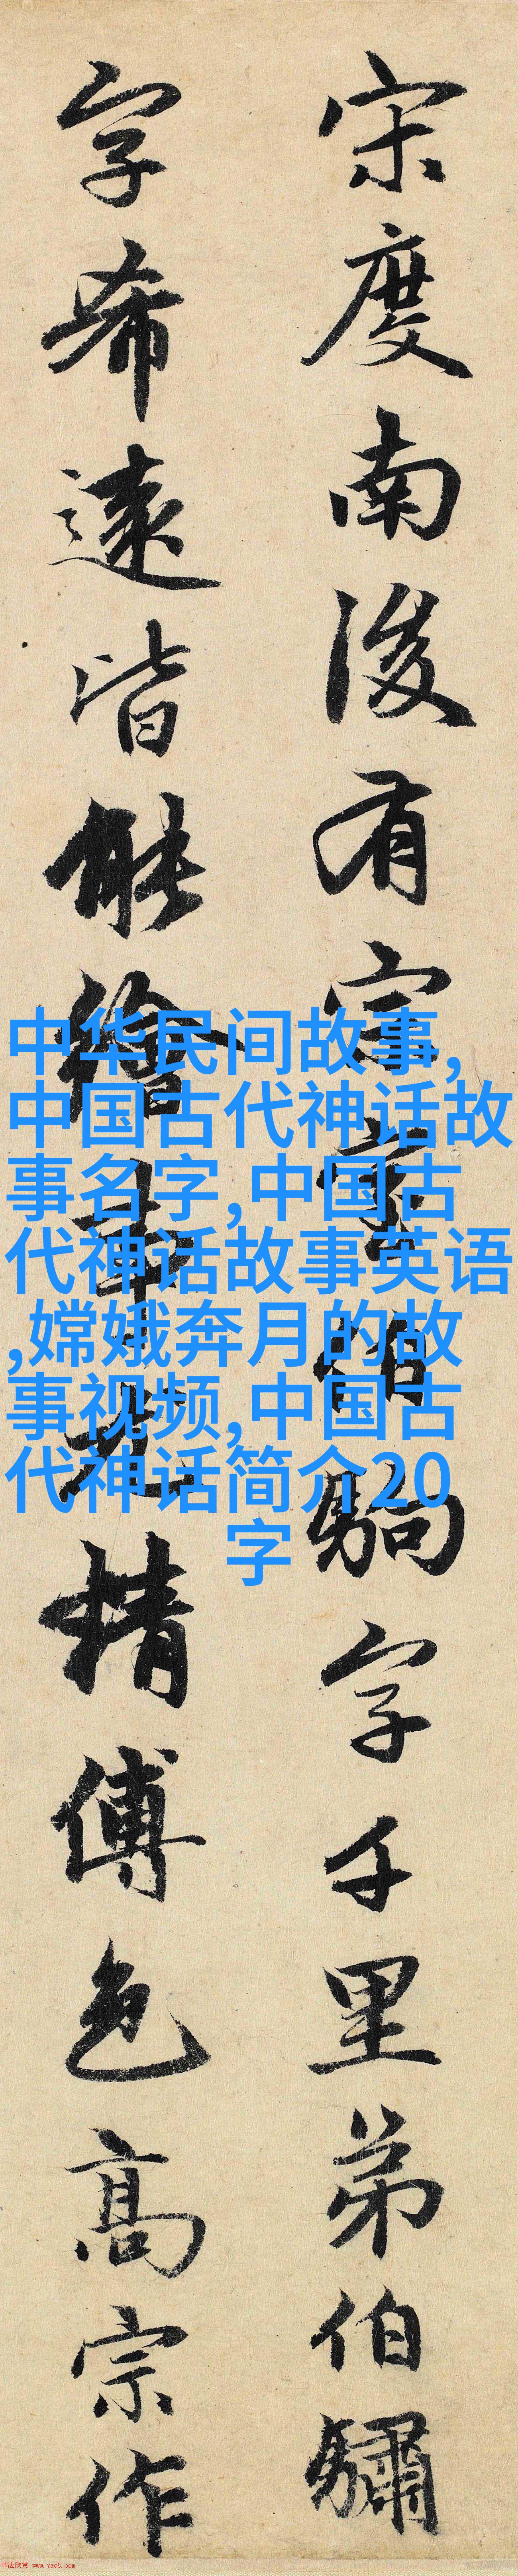 宋度南後有宗室伯駒字千里弟伯驌
字希遠皆能繪事尤精傅色高宗作
中华民间故事,
中国古代神话故
事名字,中国古
代神话故事英语
,嫦娥奔月的故
事视频,中国古
代神话简介20
字
书法欣赏 www.yac8.com